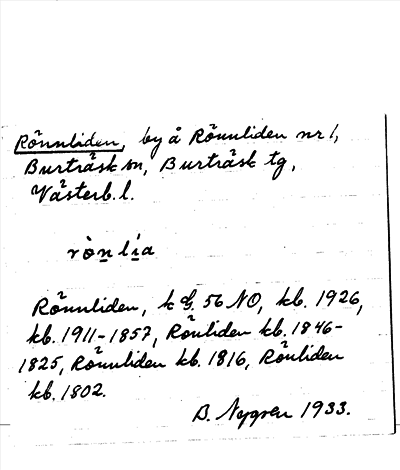 Rönnliden, by å Rönnliden nr 1,
Burträsk sn, Burträsk tg,
Västerb. l.
rö̀n̲lí̲a
Rönnliden, k G. 56 NO, kb. 1926,
kb. 1911-1857, Rönliden kb. 1846-
1825, Rönnliden kb. 1816, Rönliden
kb. 1802.
B. Nygren 1933.